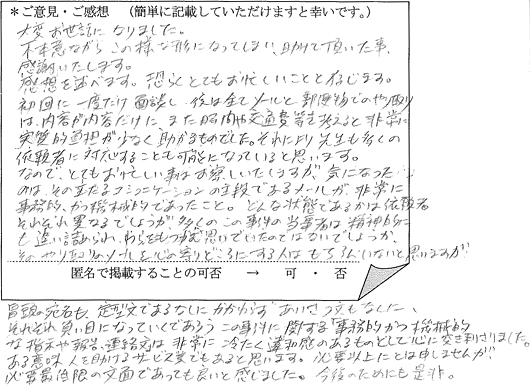 *ご意見・ご感想 (簡単に記載していただけますと幸いです。)
大変お世話になりました。
不本意ながらこの様な形になってしまい、助けて頂いた事、
感謝いたします。
感想を述べます。恐らくとてもお忙しいことと存じます。
初回に一度だけ面談し、後は全てメールと郵便物でのやり取り
は、内容が内容だけに、また時間や交通費等を考えると非常に
実質的負担が少なく助かるものでした。それにより先生も多くの
依頼者に対応することも可能になっていると思います。
なので、とてもお忙しい事はお察しいたしますが、気になった
のは、その主たるコミュニケーションの手段であるメールが、非常に
事務的、かつ機械的であったこと。どんな状態であるかは依頼者
それぞれ異なるでしょうが、多くのこの事件の当事者は精神的に
も追い詰められ、わらをもつかむ思いでいたのではないでしょうか。
そのやり取りのメールを心の寄りどころにする人はもちろんいないと思いますが
匿名で掲載することの可否 → 可 ・ 否
冒頭の宛名も、定型文であるなしにかかわらずあいさつ文もなしに、
それぞれ負い目になっていくであろうこの事件に関する事務的かつ機械的
な指示や報告、連絡文は非常に冷たく違和感のあるものとして心に突き刺さりました。
ある意味、人を助けるサービス業でもあると思います。必要以上にとは申しませんが
必要最低限の文面であっても良いと感じました。今後のためにも是非。